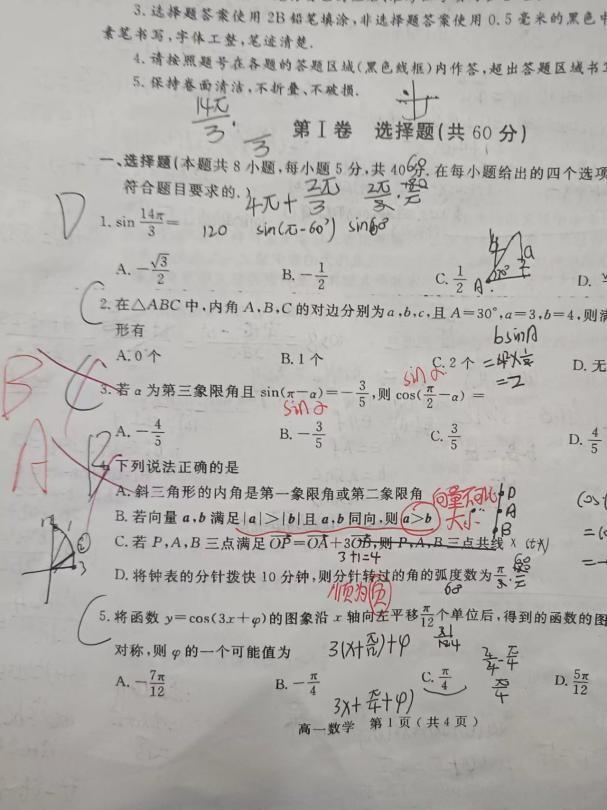 3. 选择题答案使用 2B 铅笔填涂, 非选择题答案使用 0.5 毫米的黑色中
素笔书写, 字体工整, 笔迹清楚.
4. 请按照题号在各题的答题区域(黑色线框)内作答, 超出答题区域书写
5. 保持卷面清洁, 不折叠、不破损.
14π/3.
3
第Ⅰ卷 选择题(共 60 分)
60
一、选择题(本题共 8 小题, 每小题 5 分, 共 40 分. 在每小题给出的四个选项
符合题目要求的.)
4π+2π/3
D
1. sin 14π/3 =
120 sin(π-60°) sin60
A. -√3/2 B. -1/2 C. 1/2 D.
4 a
A
C
2. 在△ABC 中, 内角 A,B,C 的对边分别为 a,b,c, 且 A=30°, a=3, b=4, 则满
形有
bsinA
A. 0 个 B. 1 个 C. 2 个 D. 无
=4×1/2
=2
B C
3. 若 α 为第三象限角且 sin(π-α)=-3/5, 则 cos(π/2-α) =
sinα sinα
A. -4/5 B. -3/5 C. 3/5 D. 4/5
A B
4. 下列说法正确的是
A. 斜三角形的内角是第一象限角或第二象限角
向量不可比
大小
P
A
B
B. 若向量 a,b 满足|a|>|b|且 a,b 同向, 则 a>b
C. 若 P,A,B 三点满足 OP=OA+3OB, 则 P,A,B 三点共线
3+1=4
D. 将钟表的分针拨快 10 分钟, 则分针转过的角的弧度数为 π/3.
顺为负
C
5. 将函数 y=cos(3x+φ)的图象沿 x 轴向左平移 π/12 个单位后, 得到的函数的图
对称, 则 φ 的一个可能值为
3(x+π/12)+φ
A. -7π/12 B. -π/4 C. π/4 D. 5π/12
3x+π/4+φ)
高一数学 第 1 页(共 4 页)